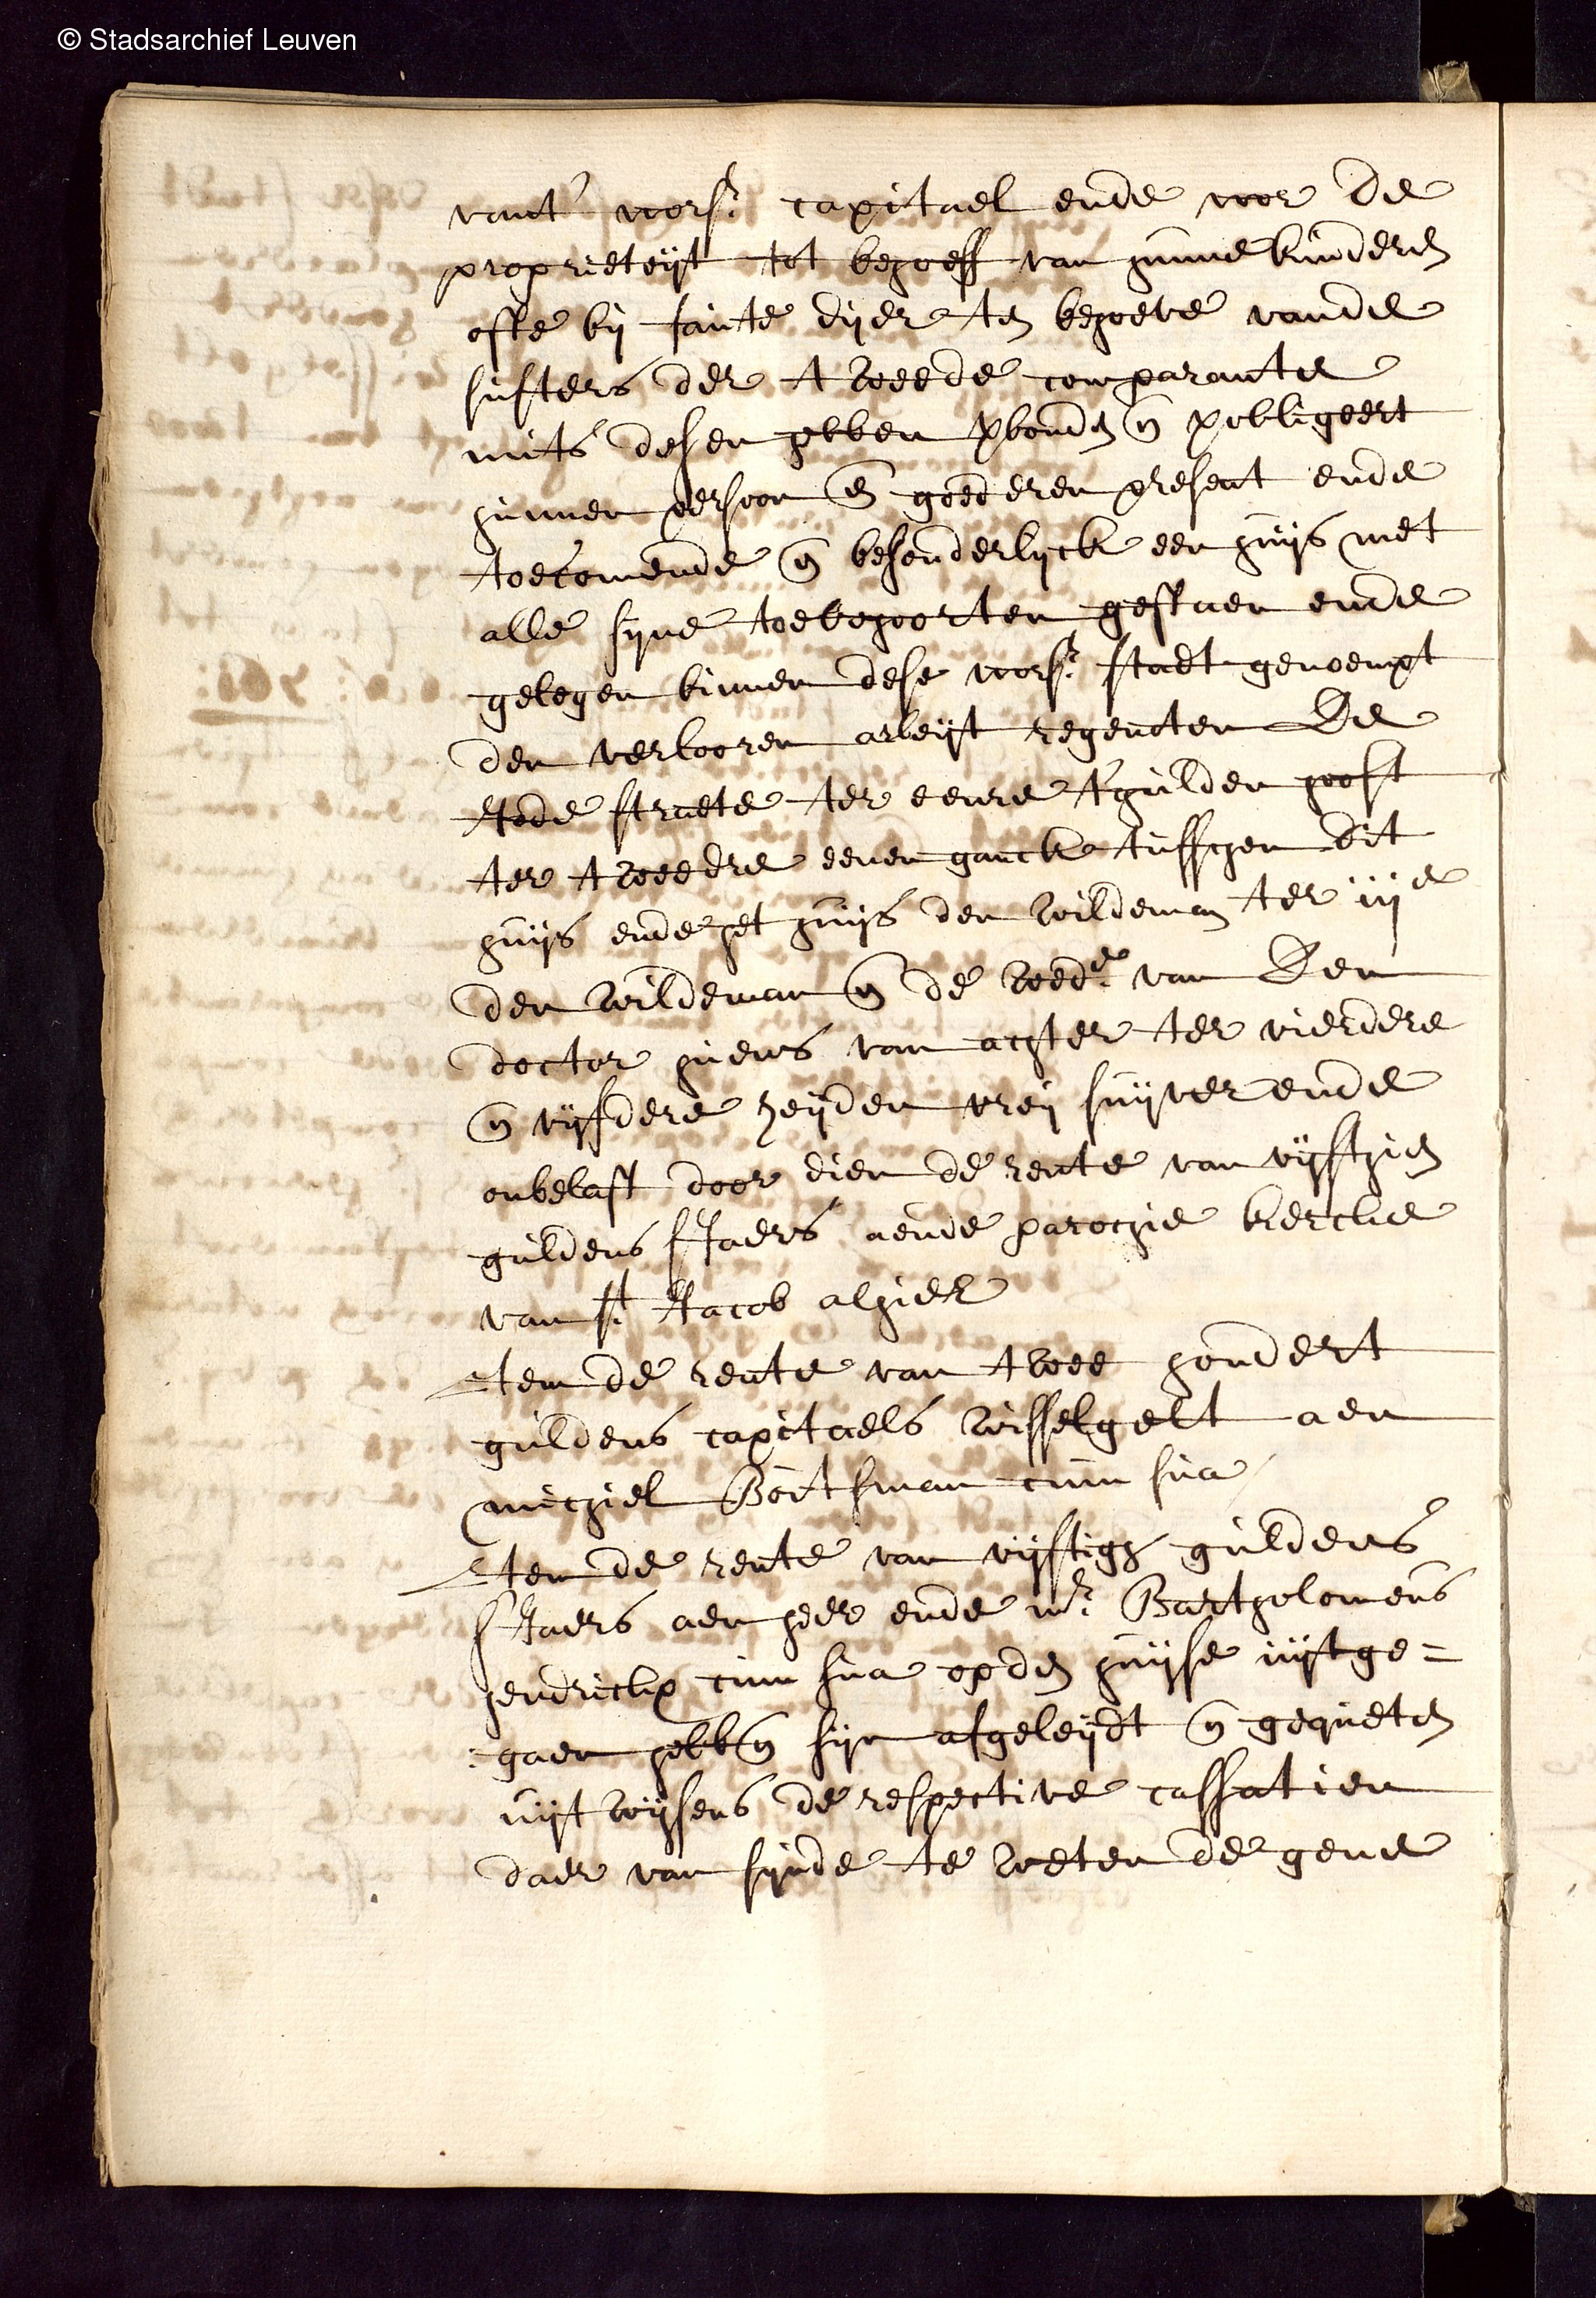 © Stadsarchief Leuven
vant' vors: capitael ende voor de
proprieteijt tot behoeff van hunne kinderen
ofte bij faute dijer ten behoeve vande
susters der tweede comparante
mits desen hebben verbonden en verobligeert
hunnen persoon en goederen present ende
toecomende en besonderlyck een huijs met
alle syne toebehoorten gestaen ende
gelegen binnen dese vors: stadt genoempt
den verlooren arbeijt regenoten De
Jode straete ter eenre t'gulden hooft
ter tweedre eenen ganck tusschen dit
huijs ende het huijs den wildeman ter iije
den wildeman en de wede: van Den
doctor huens van achter ter vierdere
en vijfdere zeijden vrij suijver ende
onbelast door dien de rente van vijfthien
guldens sJaers aende parochie kercke
van St: Jacob alhier
Item de rente van twee hondert
guldens capitaels wisselgelt aen
michiel Bortsman cum sua
Item de rente van vijftigh guldens
sJaers aen heer ende mr: Bartholomeus
hendrickx cum sua op den huijse uijtge=
:gaen hebben sijn afgeleijdt en gequeten
uijtwijsens de respective cassatien
daer van sijnde te weten de gene